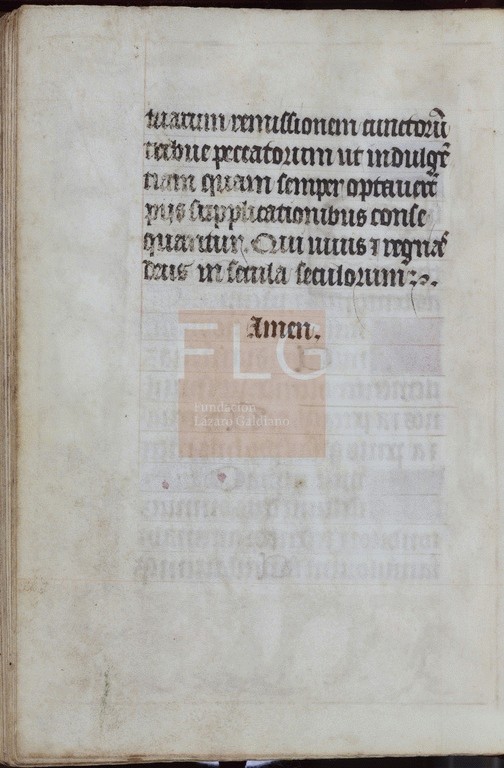 tuarum remissionem cunctorũ
tribue peccatorum ut indulgẽ
tiam quam semper optauerũt
piis supplicationibus conse
quantur. Qui uiuis ⁊ regnas
deus in secula seculorum
Amen.
FLG
Fundación
Lázaro Galdiano